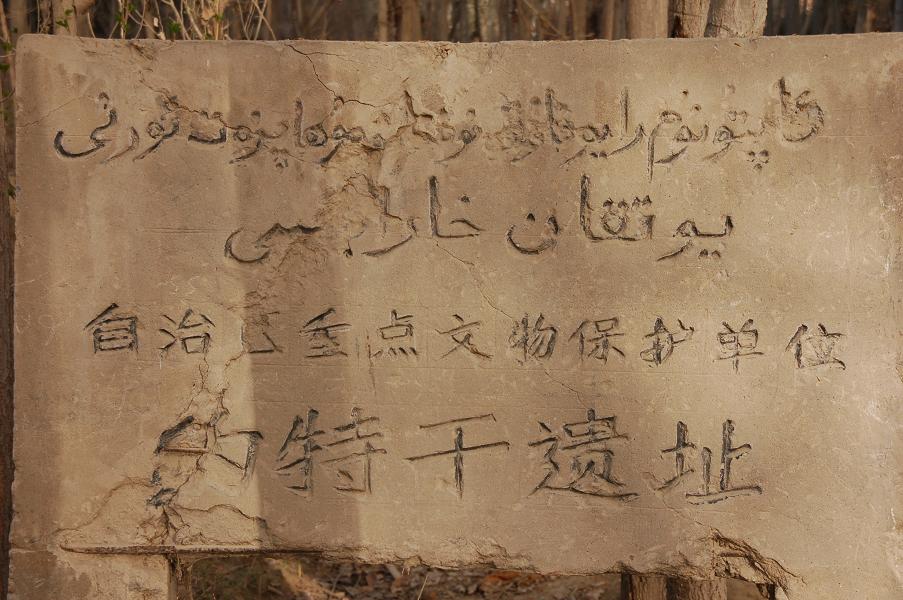 ئاپتونوم مۇھاپىزەت ئورنى
يوتقان خارابىسى
自治区重点文物保护单位
约特干遗址